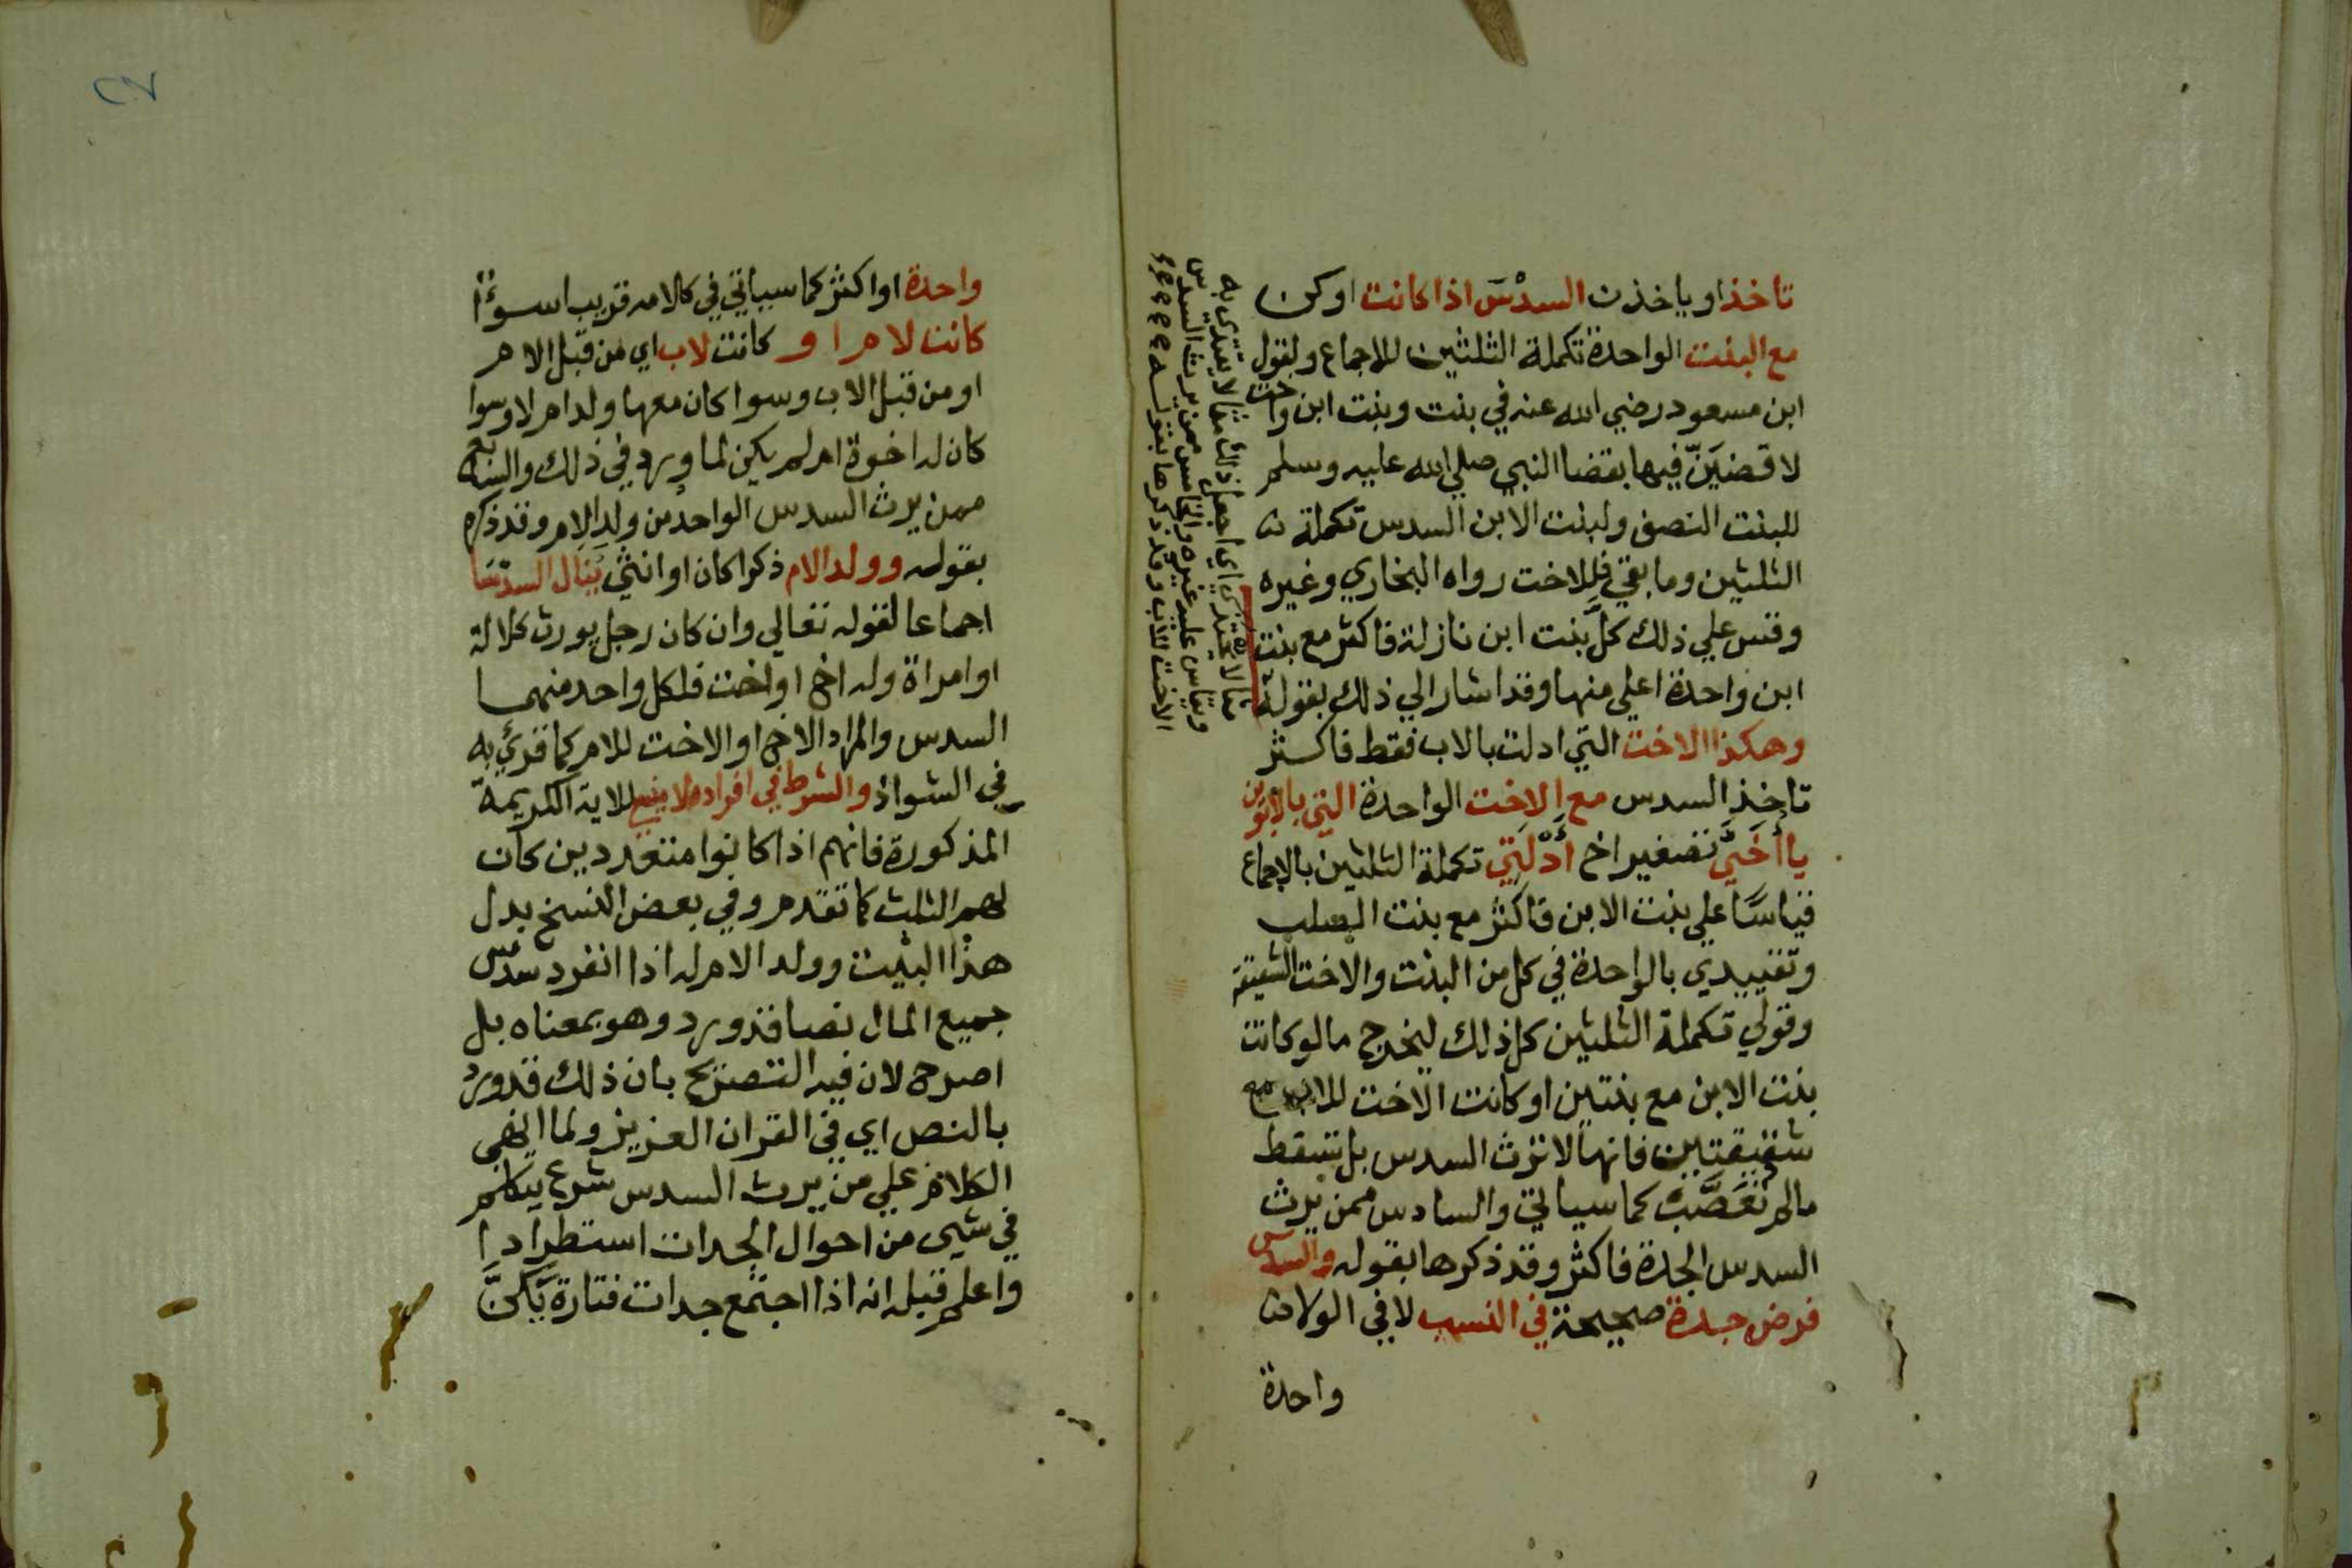 تاخذ او ياخذن السدْسَ اذا كانت او كن
مع البنت الواحدة تكملة الثلثين للاجماع ولقول
ابن مسعود رضي الله عنه في بنت وبنت ابن واخت
لاقضيَنّ فيها بقضا النبي صلي الله عليه وسلم
للبنت النصف ولبنت الابن السدس تكملة
الثلثين وما بقي فللاخت رواه البخاري وغيره
وقس علي ذلك كلَّ بنت ابن نازلة فاكثر مع بنت
ابن واحدة اعلي منها وقد اشار الي ذلك بقوله
وهكذا الاخت التي ادلت بالاب فقط فاكثر
تاخذ السدس مع الاخت الواحدة التي بالابوين
يا أُخَيَّ تصغير اخ أَدْلَتِ تكملة الثلثين بالاجماع
قياسًا علي بنت الابن فاكثر مع بنت الصلب
وتقييدي بالواحدة في كل من البنت والاخت الشقيقة
وقولي تكملة الثلثين كل ذلك ليخرج ما لو كانت
بنت الابن مع بنتين او كانت الاخت للاب مع
شقيقتين فانها لا ترث السدس بل تسقط
مالم تُعَصَّب كما سياتي والسادس ممن يرث
السدس الجدة فاكثر وقد ذكرها بقوله والسدس
فرض جدة صحيحة في النسب لا في الولا
واحدة
مثالا يحتذي اي اجعل ذلك مثالا يقتدي به
ويقاس عليه غيره والخامس ممن يرث السدس
الاخت للاب وقد ذكرها بقوله
٢٧
واحدة او اكثر كما سياتي في كلامه قريبا سوءًا
كانت لام او كانت لاب اي من قبل الام
او من قبل الاب وسوا كان معها ولد ام لا وسوا
كان له اخوة ام لم يكن لما ورد في ذلك والسابع
ممن يرث السدس الواحد من ولد الام وقد ذكره
بقوله وولد الام ذكرا كان او انثي يَنال السدسَا
اجماعا لقوله تعالي وان كان رجل يورث كلالة
او امراة وله اخ او اخت فلكل واحد منهما
السدس والمراد الاخ او الاخت للام كما قرئ به
في الشواذ والشرط في افراده لا ينسي للاية الكريمة
المذكورة فانهم اذا كانوا متعددين كان
لهم الثلث كما تقدم وفي بعض النسخ بدل
هذا البيت وولد الام له اذا انفرد سدس
جميع المال نصا قد ورد وهو بمعناه بل
اصرح لان فيه التصريح بان ذلك قد ورد
بالنص اي في القران العزيز ولما انهي
الكلام علي من يرث السدس شرع يتكلم
في شي من احوال الجدات استطرادا
واعلم قبله انه اذا اجتمع جدات فتارة يَكنَّ